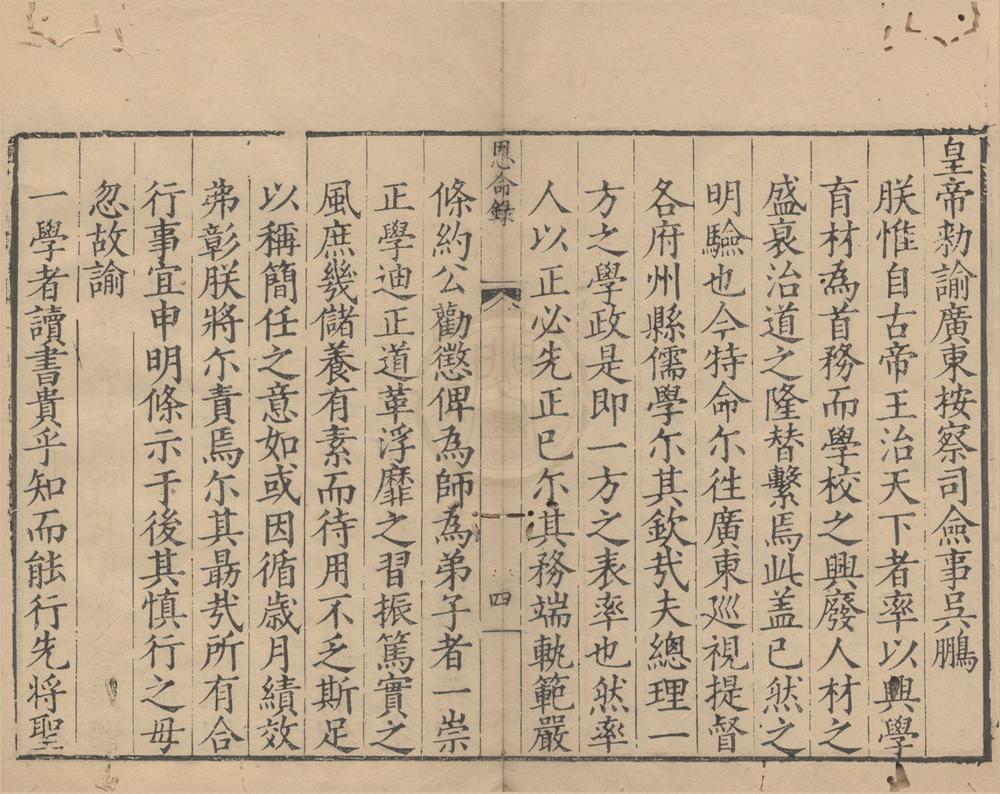 皇帝勑諭廣東按察司僉事吳鵬
朕惟自古帝王治天下者率以興學
育材為首務而學校之興廢人材之
盛衰治道之隆替繫焉此盖已然之
明驗也今特命尓徃廣東廵視提督
各府州縣儒學尓其欽㢤夫總理一
方之學政是即一方之表率也然率
人以正必先正已尓其務端軌範嚴
恩命錄
四
條約公勸懲俾為師為弟子者一崇
正學迪正道革浮靡之習振篤實之
風庶幾儲養有素而待用不乏斯足
以稱簡任之意如或因循歲月績效
弗彰朕將尓責焉尓其勗㢤所有合
行事宜申明條示于後其慎行之毋
忽故諭
一學者讀書貴乎知而能行先將聖